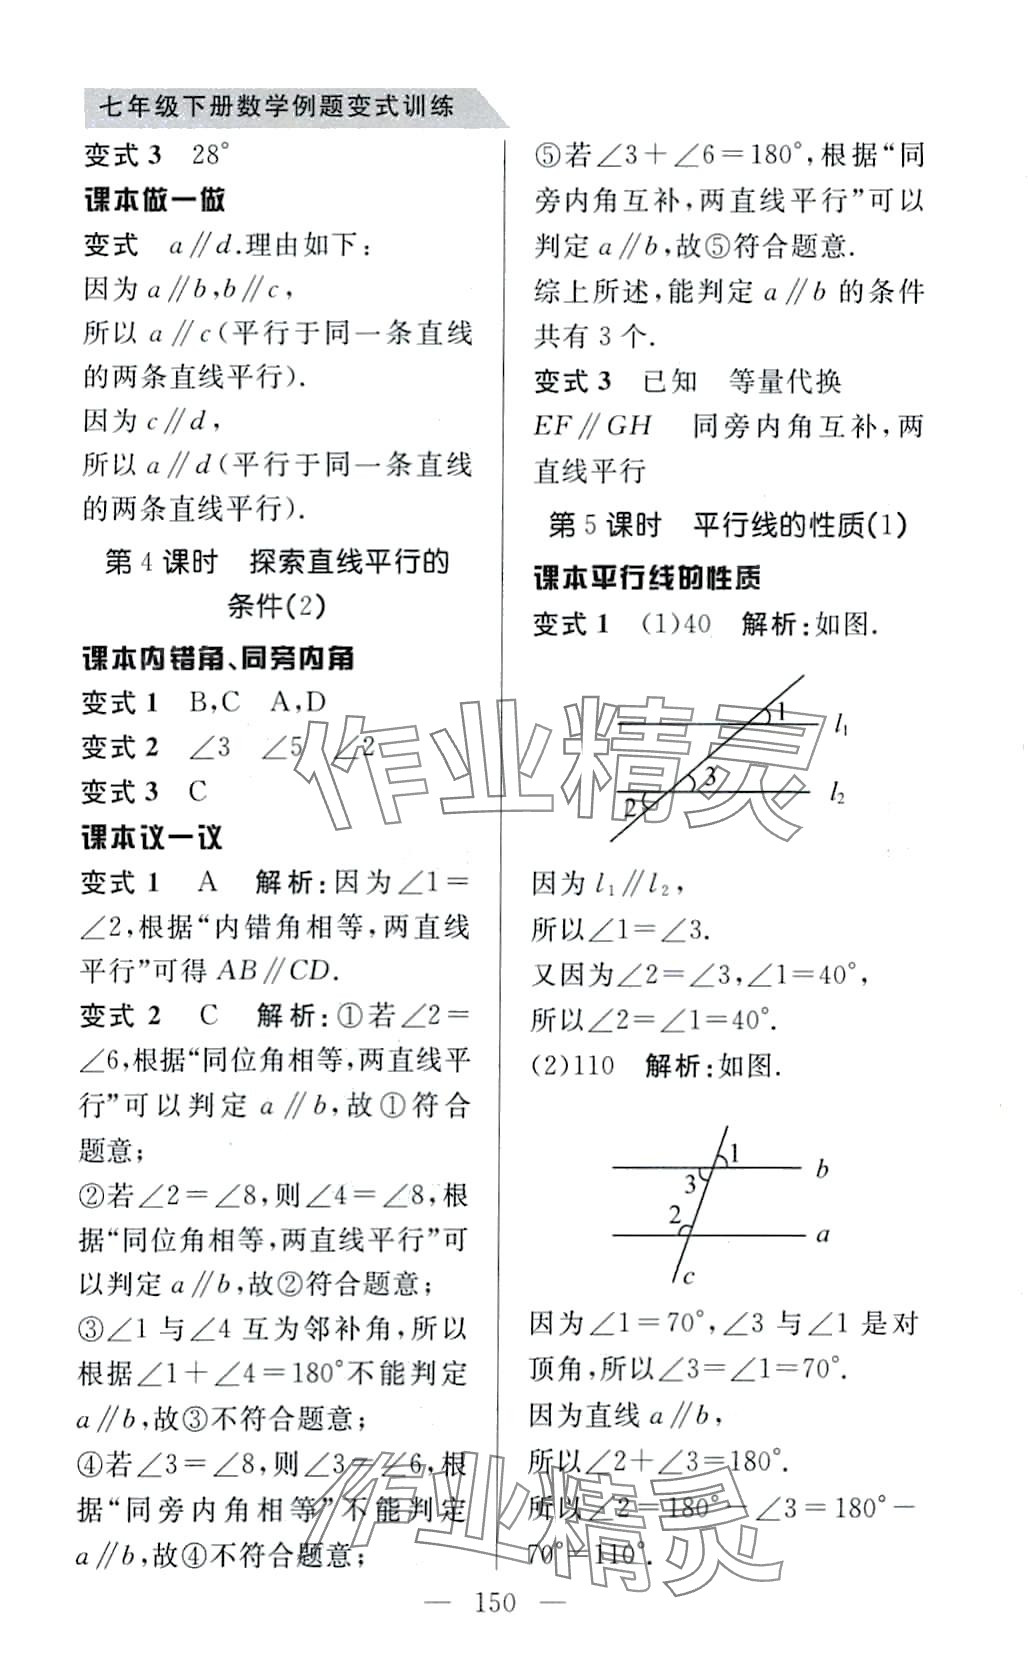 七年级下册数学例题变式训练
变式 3　28°
课本做一做
变式　a∥d.理由如下:
因为 a∥b,b∥c,
所以 a∥c(平行于同一条直线
的两条直线平行).
因为 c∥d,
所以 a∥d(平行于同一条直线
的两条直线平行).
第 4 课时　探索直线平行的
条件(2)
课本内错角、同旁内角
变式 1　B,C　A,D
变式 2　∠3　∠5　∠2
变式 3　C
课本议一议
变式 1　A　解析:因为∠1=
∠2,根据“内错角相等,两直线
平行”可得 AB∥CD.
变式 2　C　解析:①若∠2=
∠6,根据“同位角相等,两直线平
行”可以判定 a∥b,故①符合
题意;
②若∠2=∠8,则∠4=∠8,根
据“同位角相等,两直线平行”可
以判定 a∥b,故②符合题意;
③∠1 与∠4 互为邻补角,所以
根据∠1+∠4=180°不能判定
a∥b,故③不符合题意;
④若∠3=∠8,则∠3=∠6,根
据“同旁内角相等”不能判定
a∥b,故④不符合题意;
⑤若∠3+∠6=180°,根据“同
旁内角互补,两直线平行”可以
判定 a∥b,故⑤符合题意.
综上所述,能判定 a∥b 的条件
共有 3 个.
变式 3　已知　等量代换
EF∥GH　同旁内角互补,两
直线平行
第 5 课时　平行线的性质(1)
课本平行线的性质
变式 1　(1)40　解析:如图.
1
l₁
3
2
l₂
因为 l₁∥l₂,
所以∠1=∠3.
又因为∠2=∠3,∠1=40°,
所以∠2=∠1=40°.
(2)110　解析:如图.
1
b
3
2
a
c
因为∠1=70°,∠3 与∠1 是对
顶角,所以∠3=∠1=70°.
因为直线 a∥b,
所以∠2+∠3=180°.
所以∠2=180°-∠3=180°-
70°=110°.
— 150 —
作业精灵
作业精灵